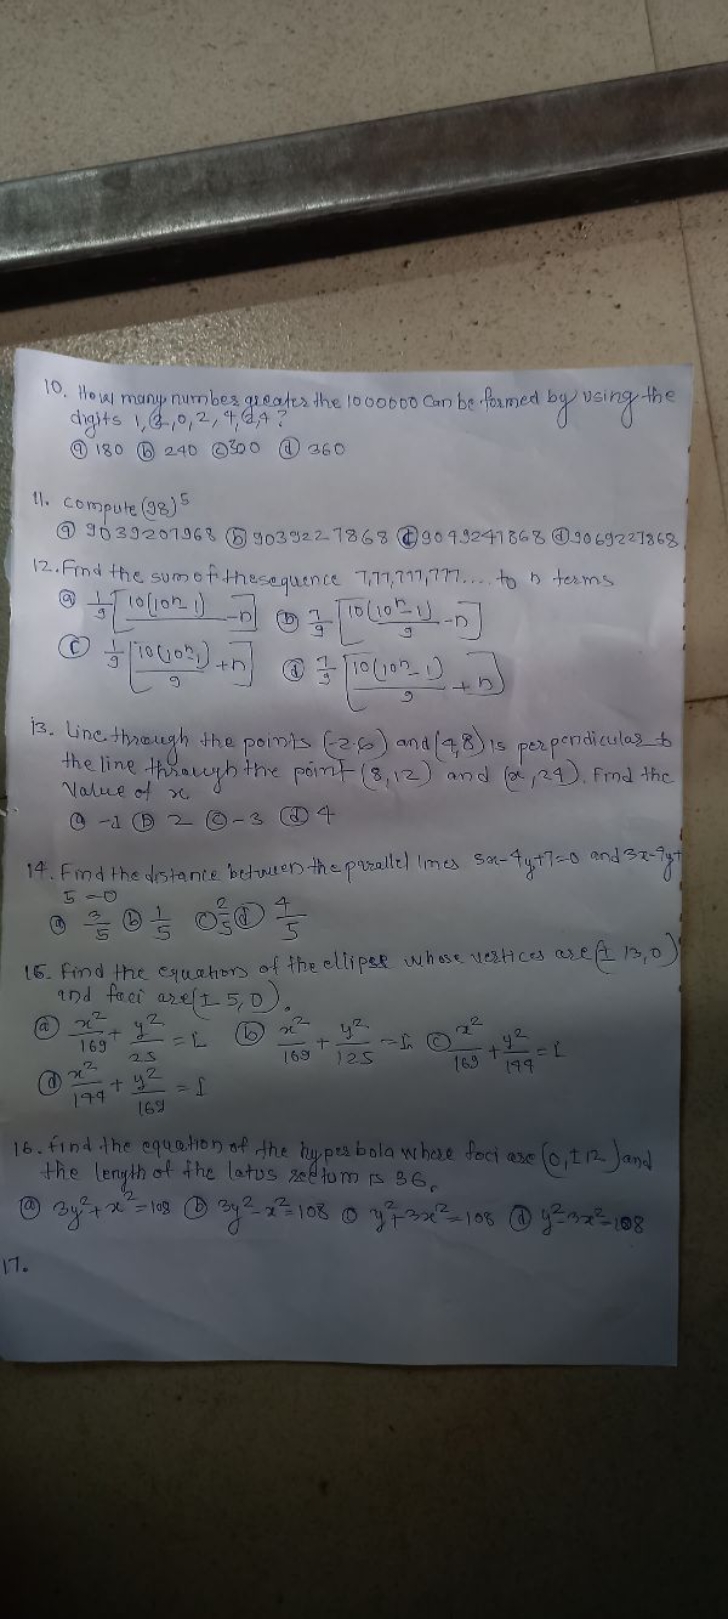 10. How many number greater the 1000000 can be formed by using the
digits 1, 2, 0, 2, 4, 2, 4?
(a) 180 (b) 240 (c) 300 (d) 360
11. compute (98)^5
(a) 9039207968 (b) 9039227868 (c) 9049247868 (d) 9069227868
12. Find the sum of the sequence 7,77,777,777.... to n terms
(a) 1/9 [10(10^n-1) -n] (b) 7/9 [10(10^n-1)/9 -n]
(c) 1/9 [10(10^n-1)/9 +n] (d) 7/9 [10(10^n-1)/9 +n]
13. Line through the points (-2,6) and (4,8) is perpendicular to
the line through the point (8,12) and (x,24). Find the
Value of x
(a) -1 (b) 2 (c) -3 (d) 4
14. Find the distance between the parallel lines 3x-4y+7=0 and 3x-4y+
5=0
(a) 3/5 (b) 1/5 (c) 2/5 (d) 4/5
15. Find the equations of the ellipse whose vertices are (± 13,0)
and foci are (± 5,0).
(a) x²/169 + y²/25 = 1 (b) x²/169 + y²/125 = 1 (c) x²/169 + y²/144 = 1
(d) x²/144 + y²/169 = 1
16. find the equation of the hyperbola where foci are (0,±12) and
the length of the latus rectum is 36.
(a) 3y²+x²=108 (b) 3y²-x²=108 (c) y²+3x²=108 (d) y²-3x²=108
17.